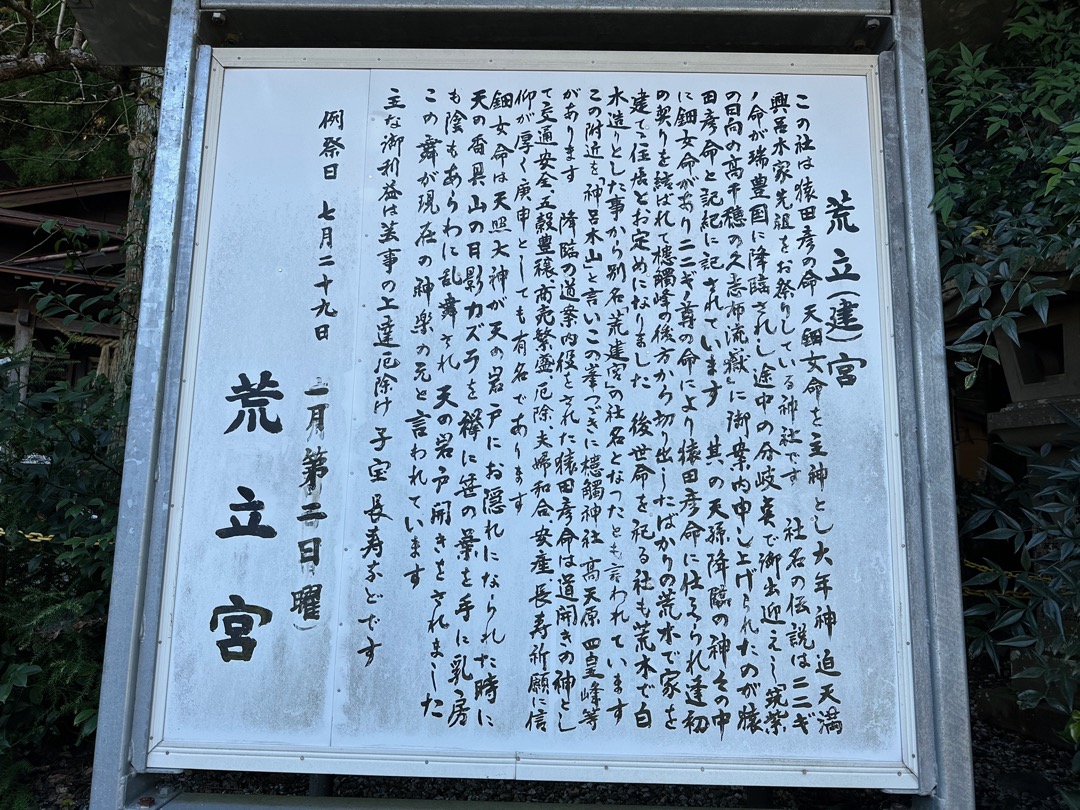 荒立(建)宮
この社は猿田彦の命 天鈿女命を主神とし大年神 迫天満
興呂木家先祖をお祭りしている神社です 社名の伝説はニニギ
ノ命が瑞豊国に降臨されし途中の分岐点で御出迎えし筑紫
の日向の高千穂の久志布流嶽に御案内申し上げられたのが猿
田彦命と記紀に記されています 其の天孫降臨の神々の中
に鈿女命がありニニギノ尊の命により猿田彦命に仕えられ逢初
の契りを結ばれて槵觸峰の後方から切り出したばかりの荒木で家を
建て住居とお定めになりました 後世命を祀る社も荒木で白
木造りとした事から別名「荒建宮」の社名となったとも言われています
この附近を神呂木山と言いこの峯つづきに槵觸神社 高天原 四皇峰等
があります 降臨の道案内役をされた猿田彦命は道開きの神とし
て交通安全、五穀豊穣、商売繁盛、厄除、夫婦和合、安産、長寿祈願に信
仰が厚く庚申としても有名であります
鈿女命は天照大神が天の岩戸にお隠れになられた時に
天の香具山の日影カズラを襷に笹の葉を手に乳房
も陰もあらわに乱舞され 天の岩戸開きをされました
この舞が現在の神楽の元と言われています
主な御利益は芸事の上達厄除け 子宝 長寿などです
例祭日 七月二十九日 一月第二日曜)
荒立宮